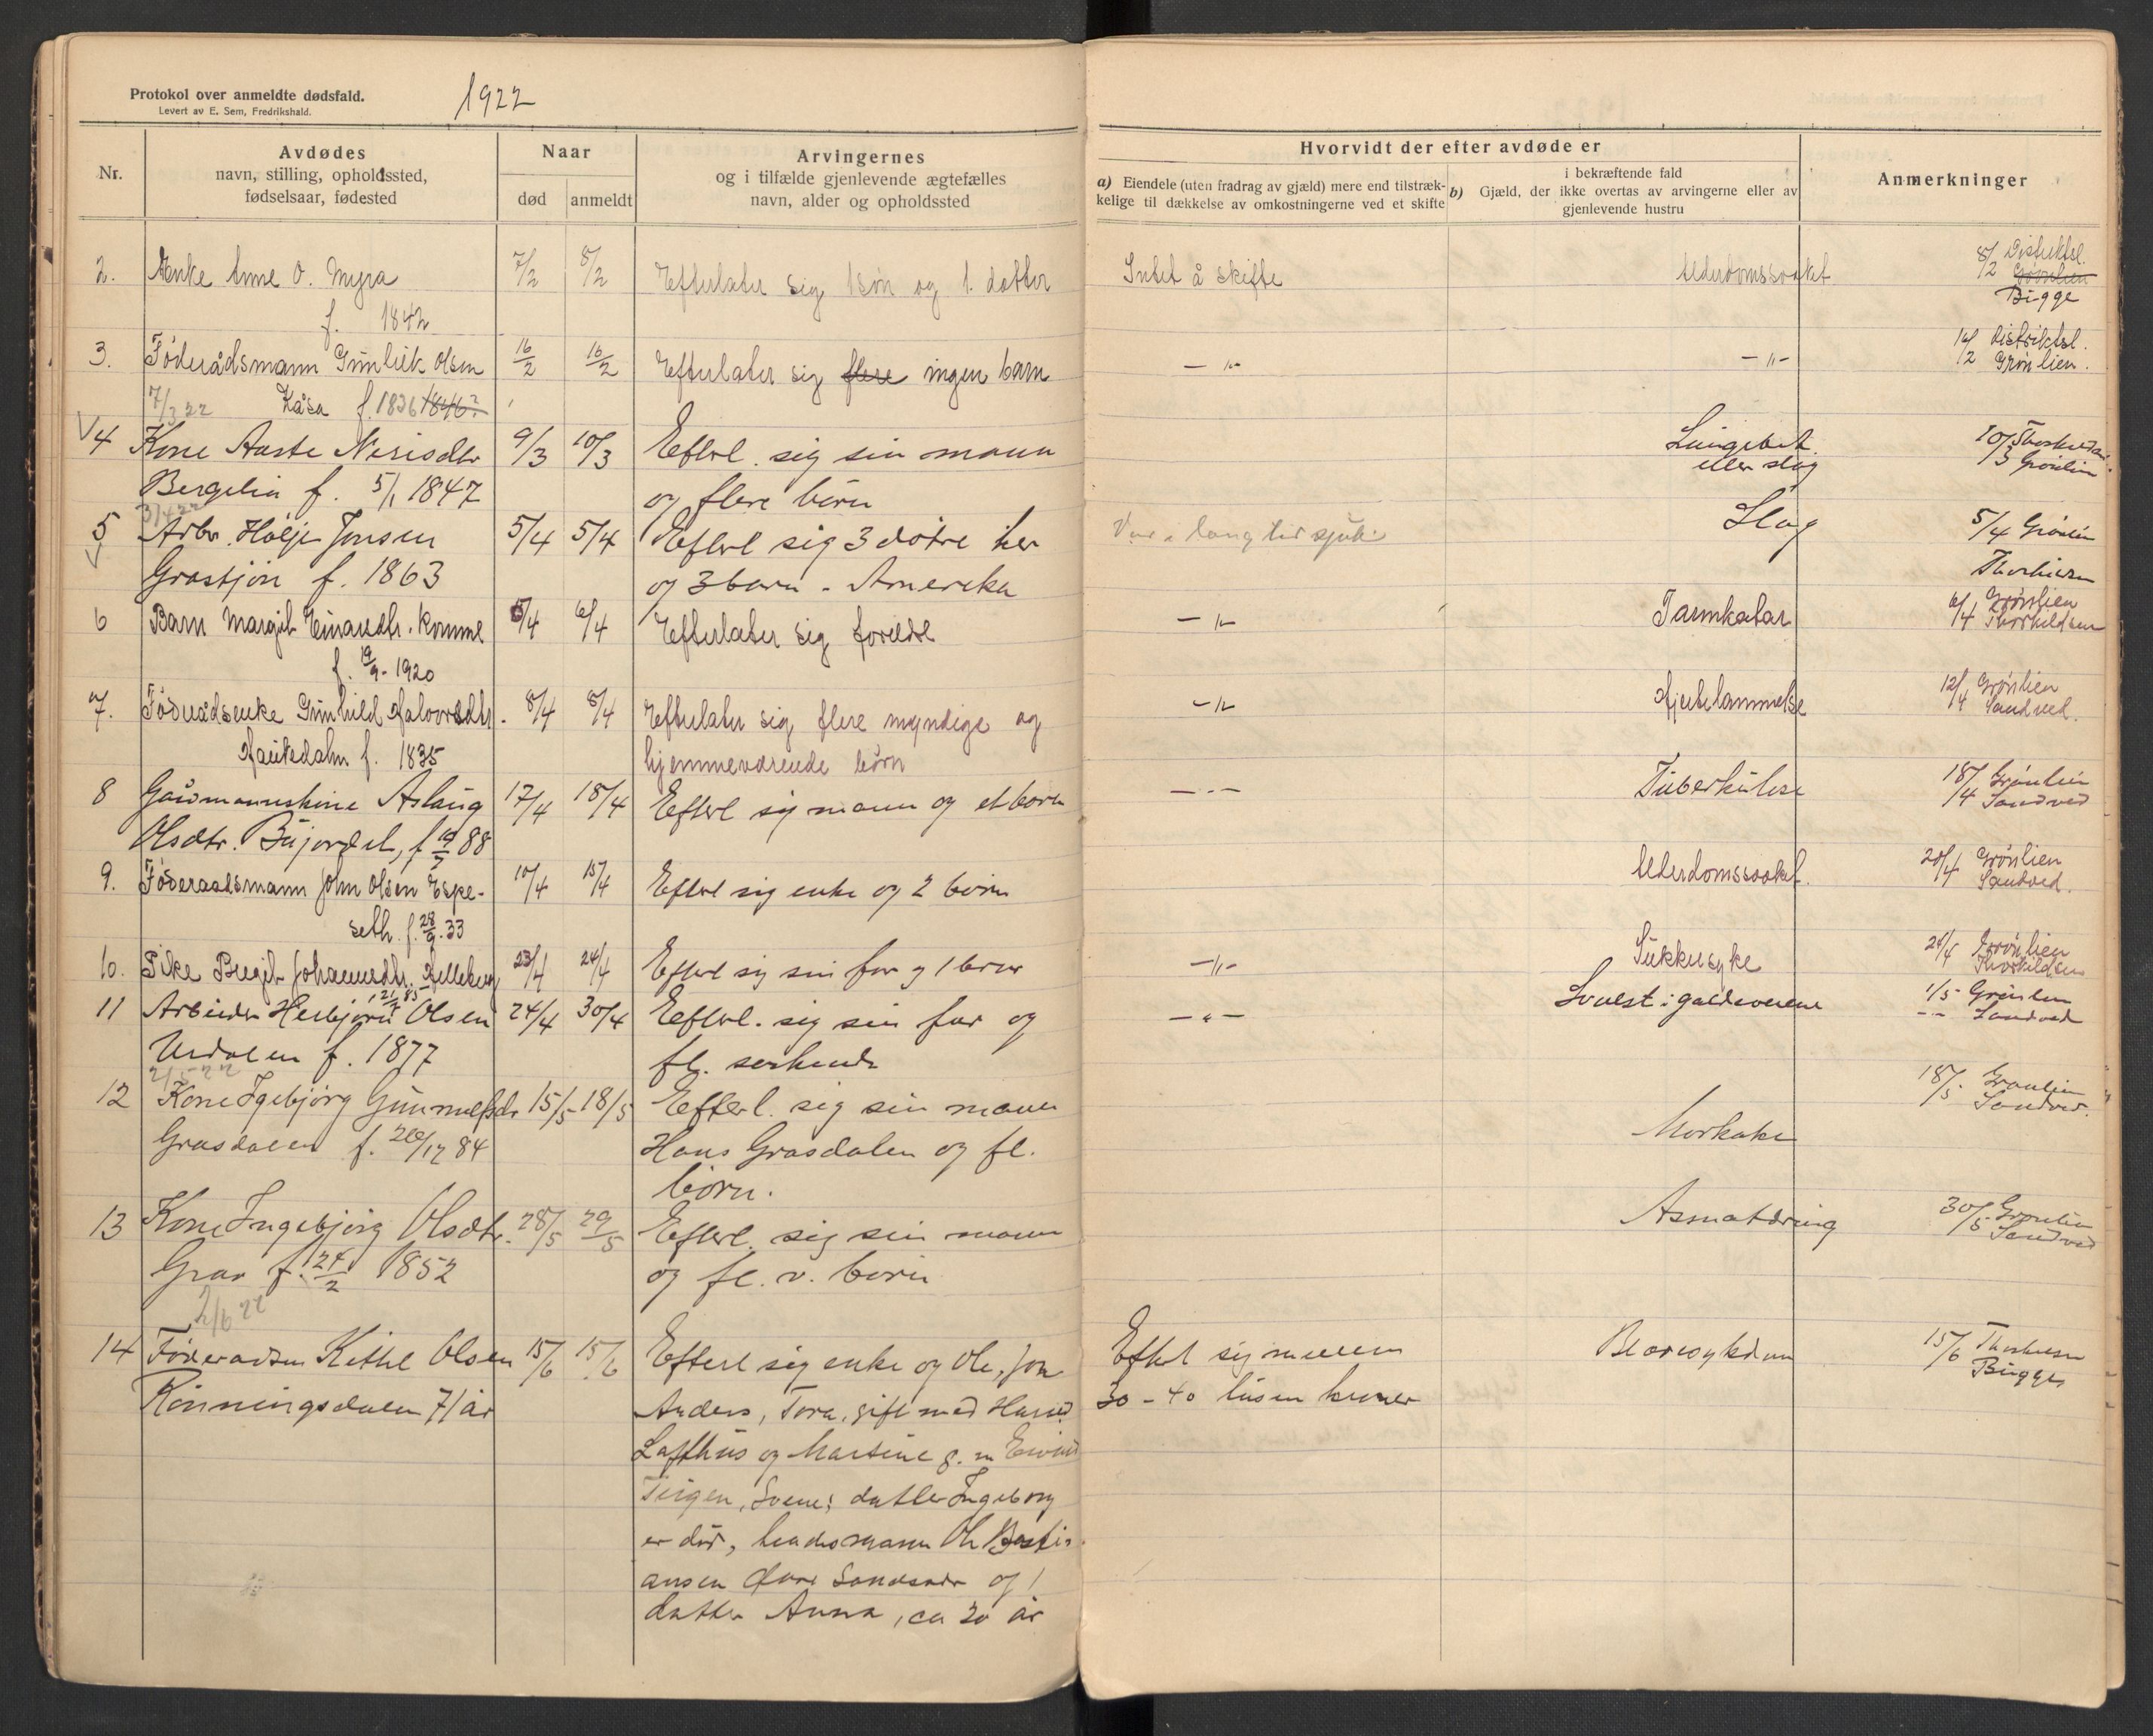 Protokol over anmeldte dødsfald.
Levert av E. Sem, Fredrikshald.
1922
Nr.
Avdødes
navn, stilling, opholdssted,
fødselsaar, fødested
Naar
død
anmeldt
Arvingernes
og i tilfælde gjenlevende ægtefælles
navn, alder og opholdssted
Hvorvidt der efter avdøde er
a) Eiendele (uten fradrag av gjæld) mere end tilstræk-
kelige til dækkelse av omkostningerne ved et skifte
i bekræftende fald
b) Gjæld, der ikke overtas av arvingerne eller av
gjenlevende hustru
Anmerkninger
2. Enke Anne O. Myra 7/2 8/2 Efterlater sig 1 søn og 1. datter Intet å skifte Alderdomssvaket 8/2 Distriktsl.
Grønlien
f. 1842 Bigge
3. Föderådsmann Gunleik Olsen 16/2 16/2 Efterlater sig flere ingen barn — " — — " — 16/2 distriktsl.
Grønlien.
7/3 22 Kåsa f. 1836 1846?
4 Kone Aaste Nerisdtr 9/3 10/3 Efterl. sig sin mann Lungebet. 10/3
eller slag Grønlien
Bergelia f. 5/1 1847 og flere börn
3/4 22
5 Arbr. Hølje Jonsen 5/4 5/4 Efterl sig 3 dötre her Var i lang tid sjuk Slag 5/4 Grønlien
Grastjön f. 1863 og 3 barn i Amerika
6 Barn Margit Einarsdtr. Komme 5/4 6/4 Efterlater sig foreldre — " — Tarmkatar 6/4 Grønlien
Thorkildsen
f. 19/9 - 1920
7. Föderådsenke Gunhild Halvorsdtr. 8/4 8/4 Efterlater sig flere myndige og — " — Hjertelammelse 12/4 Grønlien
Sandved.
Haukedahn f. 1835 hjemmeværende börn
8 Gårdmannskone Aslaug 17/4 18/4 Efterl sig mann og et barn — " — Tuberkulose 18/4 Grønlien
Sandved
Olsdtr. Bujordet, f 88
9. Föderaadsmann John Olsen Espe- 10/4 15/4 Efterl sig enke og 2 börn Alderdomssvaket. 20/4 Grønlien
Sandved.
seth. f. 28/9. 33
10. Pike Birgit Johannesdtr. Helleberg 23/4 24/4 Efterl sig sin far og 1 bror — " — Sukkersyke 24/4 Grønlien
Thorkildsen
11 Arbeider Herbjörn Olsen 24/4 30/4 Efterl. sig sin far og — " — Svulst i galdeveiene 1/5 Grønlien
— Sandved
Urdalen f. 1877 fl. søskende
2/5 22
12 Kone Igebjörg Gunnulfsdr 15/5 18/5 Efterl. sig sin mann 18/5 Grønlien
Sandved.
Grasdalen f. 26/12 84 Hans Grasdalen og fl. Morkake
börn.
13 Kone Ingebjörg Olsdtr. 28/5 29/5 Efterl. sig sin mann 30/5 Grønlien
Sandved
Grav f. 24/2 1852 og fl. v. börn
2/6 22
14 Föderadsm Kittel Olsen 15/6 15/6 Efterl sig enke og Ole, Jon Efterl sig Blæresykdom 15/6
Bigge
Rönningsdalen 71 år Anders, Tora, gift med 30 - 40 tusen kroner
Lofthus og Martine g. m Eivind
Teigen, Svene; datter Ingeborg
er död, hendes mann Ole Basti-
ansen Sandsvær og 1
datter Anna, ca 20 år